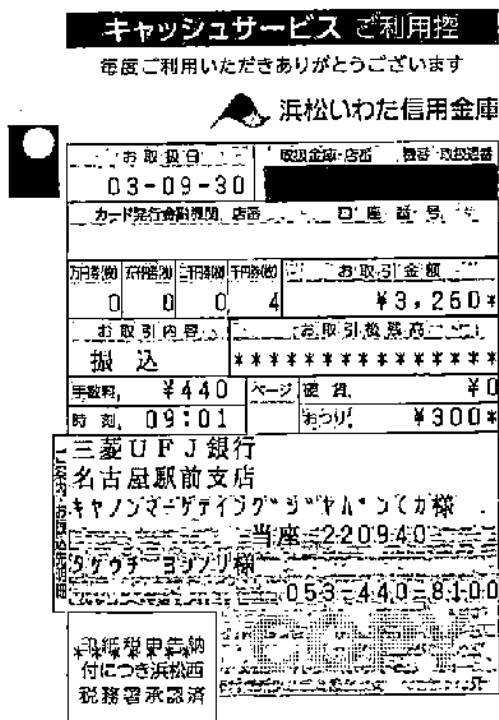 キャッシュサービス ご利用控
毎度ご利用いただきありがとうございます
浜松いわた信用金庫
お取扱日 取扱金庫・店番 機番 取扱通番
03-09-30
カード発行金融機関 店番 口座番号
万円券(枚) 五千円券(枚) 二千円券(枚) 千円券(枚) お取引金額
0 0 0 4 ¥3,260*
お取引内容 お取引後残高
振込 ***************
手数料 ¥440 ページ 硬貨 ¥0
時刻 09:01 おつり ¥300*
三菱UFJ銀行
名古屋駅前支店
キヤノンマーケテイング
当座 220940
タケウチ ヨシノリ様
053-440-8100
COPY
印紙税申告納
付につき浜松西
税務署承認済